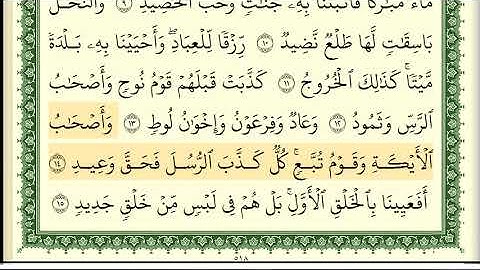 مَآءً مُّبَٰرَكًا فَأَنۢبَتْنَا بِهِۦ جَنَّٰتٍ وَحَبَّ ٱلْحَصِيدِ ۝٩ وَٱلنَّخْلَ
بَاسِقَٰتٍ لَّهَا طَلْعٌ نَّضِيدٌ ۝١٠ رِّزْقًا لِّلْعِبَادِ ۖ وَأَحْيَيْنَا بِهِۦ بَلْدَةً
مَّيْتًا ۚ كَذَٰلِكَ ٱلْخُرُوجُ ۝١١ كَذَّبَتْ قَبْلَهُمْ قَوْمُ نُوحٍ وَأَصْحَٰبُ
ٱلرَّسِّ وَثَمُودُ ۝١٢ وَعَادٌ وَفِرْعَوْنُ وَإِخْوَٰنُ لُوطٍ ۝١٣ وَأَصْحَٰبُ
ٱلْأَيْكَةِ وَقَوْمُ تُبَّعٍ ۚ كُلٌّ كَذَّبَ ٱلرُّسُلَ فَحَقَّ وَعِيدِ ۝١٤
أَفَعَيِينَا بِٱلْخَلْقِ ٱلْأَوَّلِ ۚ بَلْ هُمْ فِى لَبْسٍ مِّنْ خَلْقٍ جَدِيدٍ ۝١٥
٥١٨